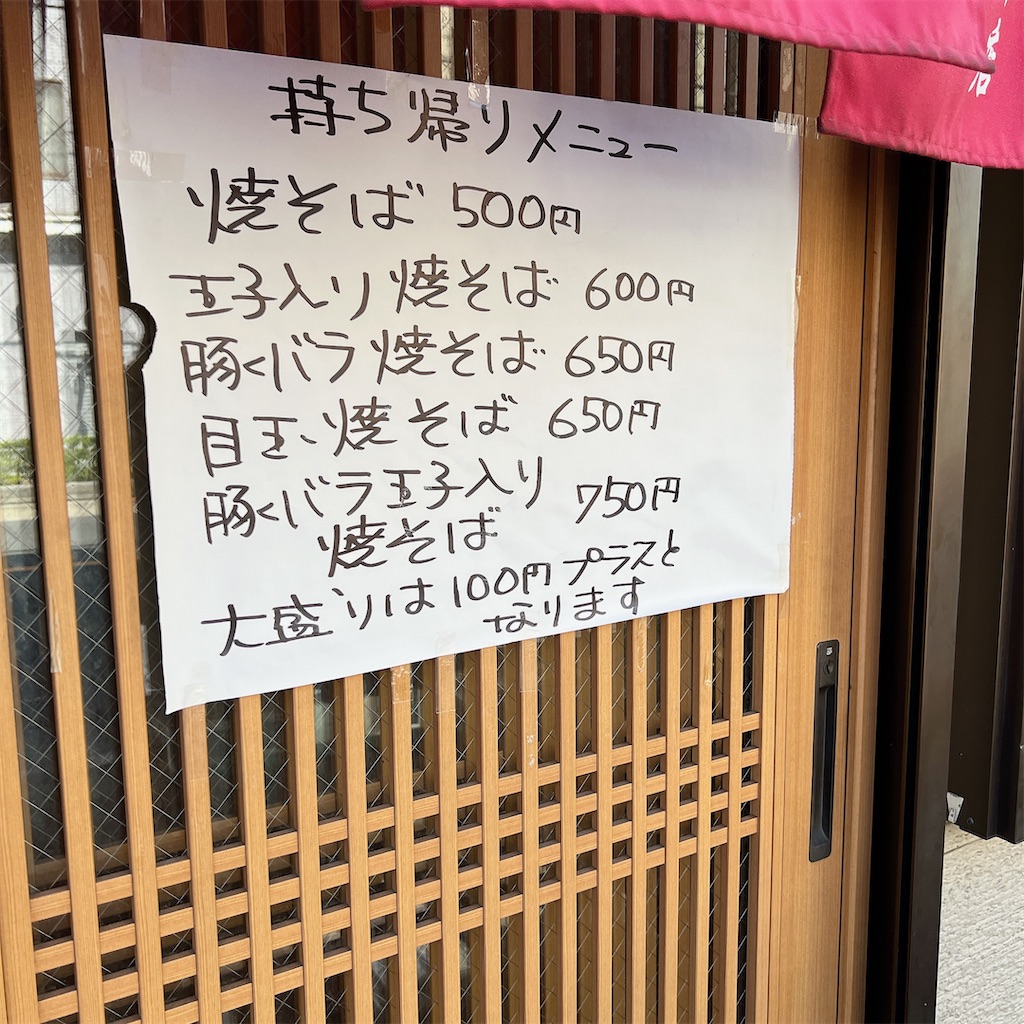 持ち帰りメニュー
焼そば 500円
玉子入り焼そば 600円
豚バラ焼そば 650円
目玉焼そば 650円
豚バラ玉子入り
焼そば 750円
大盛りは100円プラスと
なります